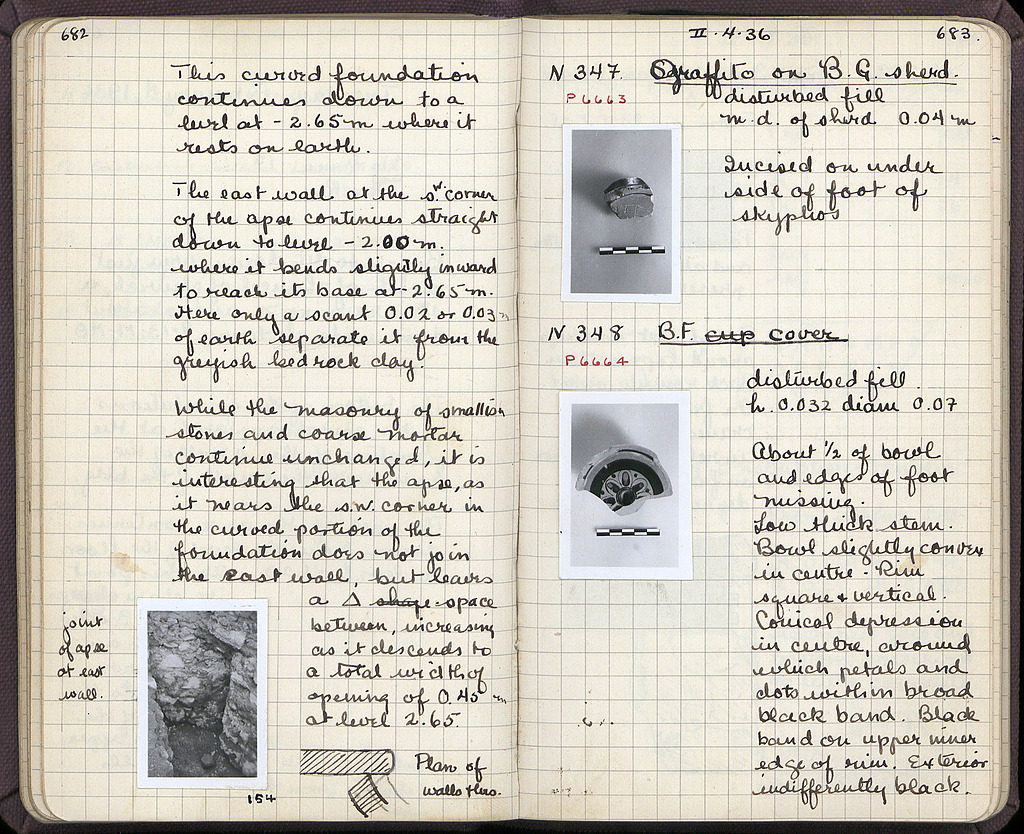 682
This curved foundation
continues down to a
level at - 2.65 m where it
rests on earth.
The east wall at the s.w. corner
of the apse continues straight
down to level - 2.00 m.
where it bends slightly inward
to reach its base at - 2.65 m.
Here only a scant 0.02 or 0.03 m
of earth separate it from the
greyish bedrock clay.
While the masonry of smallish
stones and coarse mortar
continue unchanged, it is
interesting that the apse, as
it nears the s.w. corner in
the curved portion of the
foundation does not join
the east wall, but leaves
a △ shape space
between, increasing
as it descends to
a total width of
opening of 0.45 m
at level 2.65.
joint
of apse
at east
wall.
154
Plan of
walls thus.
II · 4 · 36
683.
N 347. Sgraffito on B.G. sherd.
P 6663
disturbed fill
m.d. of sherd 0.04 m
Incised on under
side of foot of
skyphos
N 348 B.F. cup cover
P 6664
disturbed fill.
h. 0.032 diam 0.07
About 1/2 of bowl
and edges of foot
missing.
Low thick stem.
Bowl slightly convex
in centre - Rim
square + vertical.
Conical depression
in centre, around
which petals and
dots within broad
black band. Black
band on upper inner
edge of rim. Exterior
indifferently black.